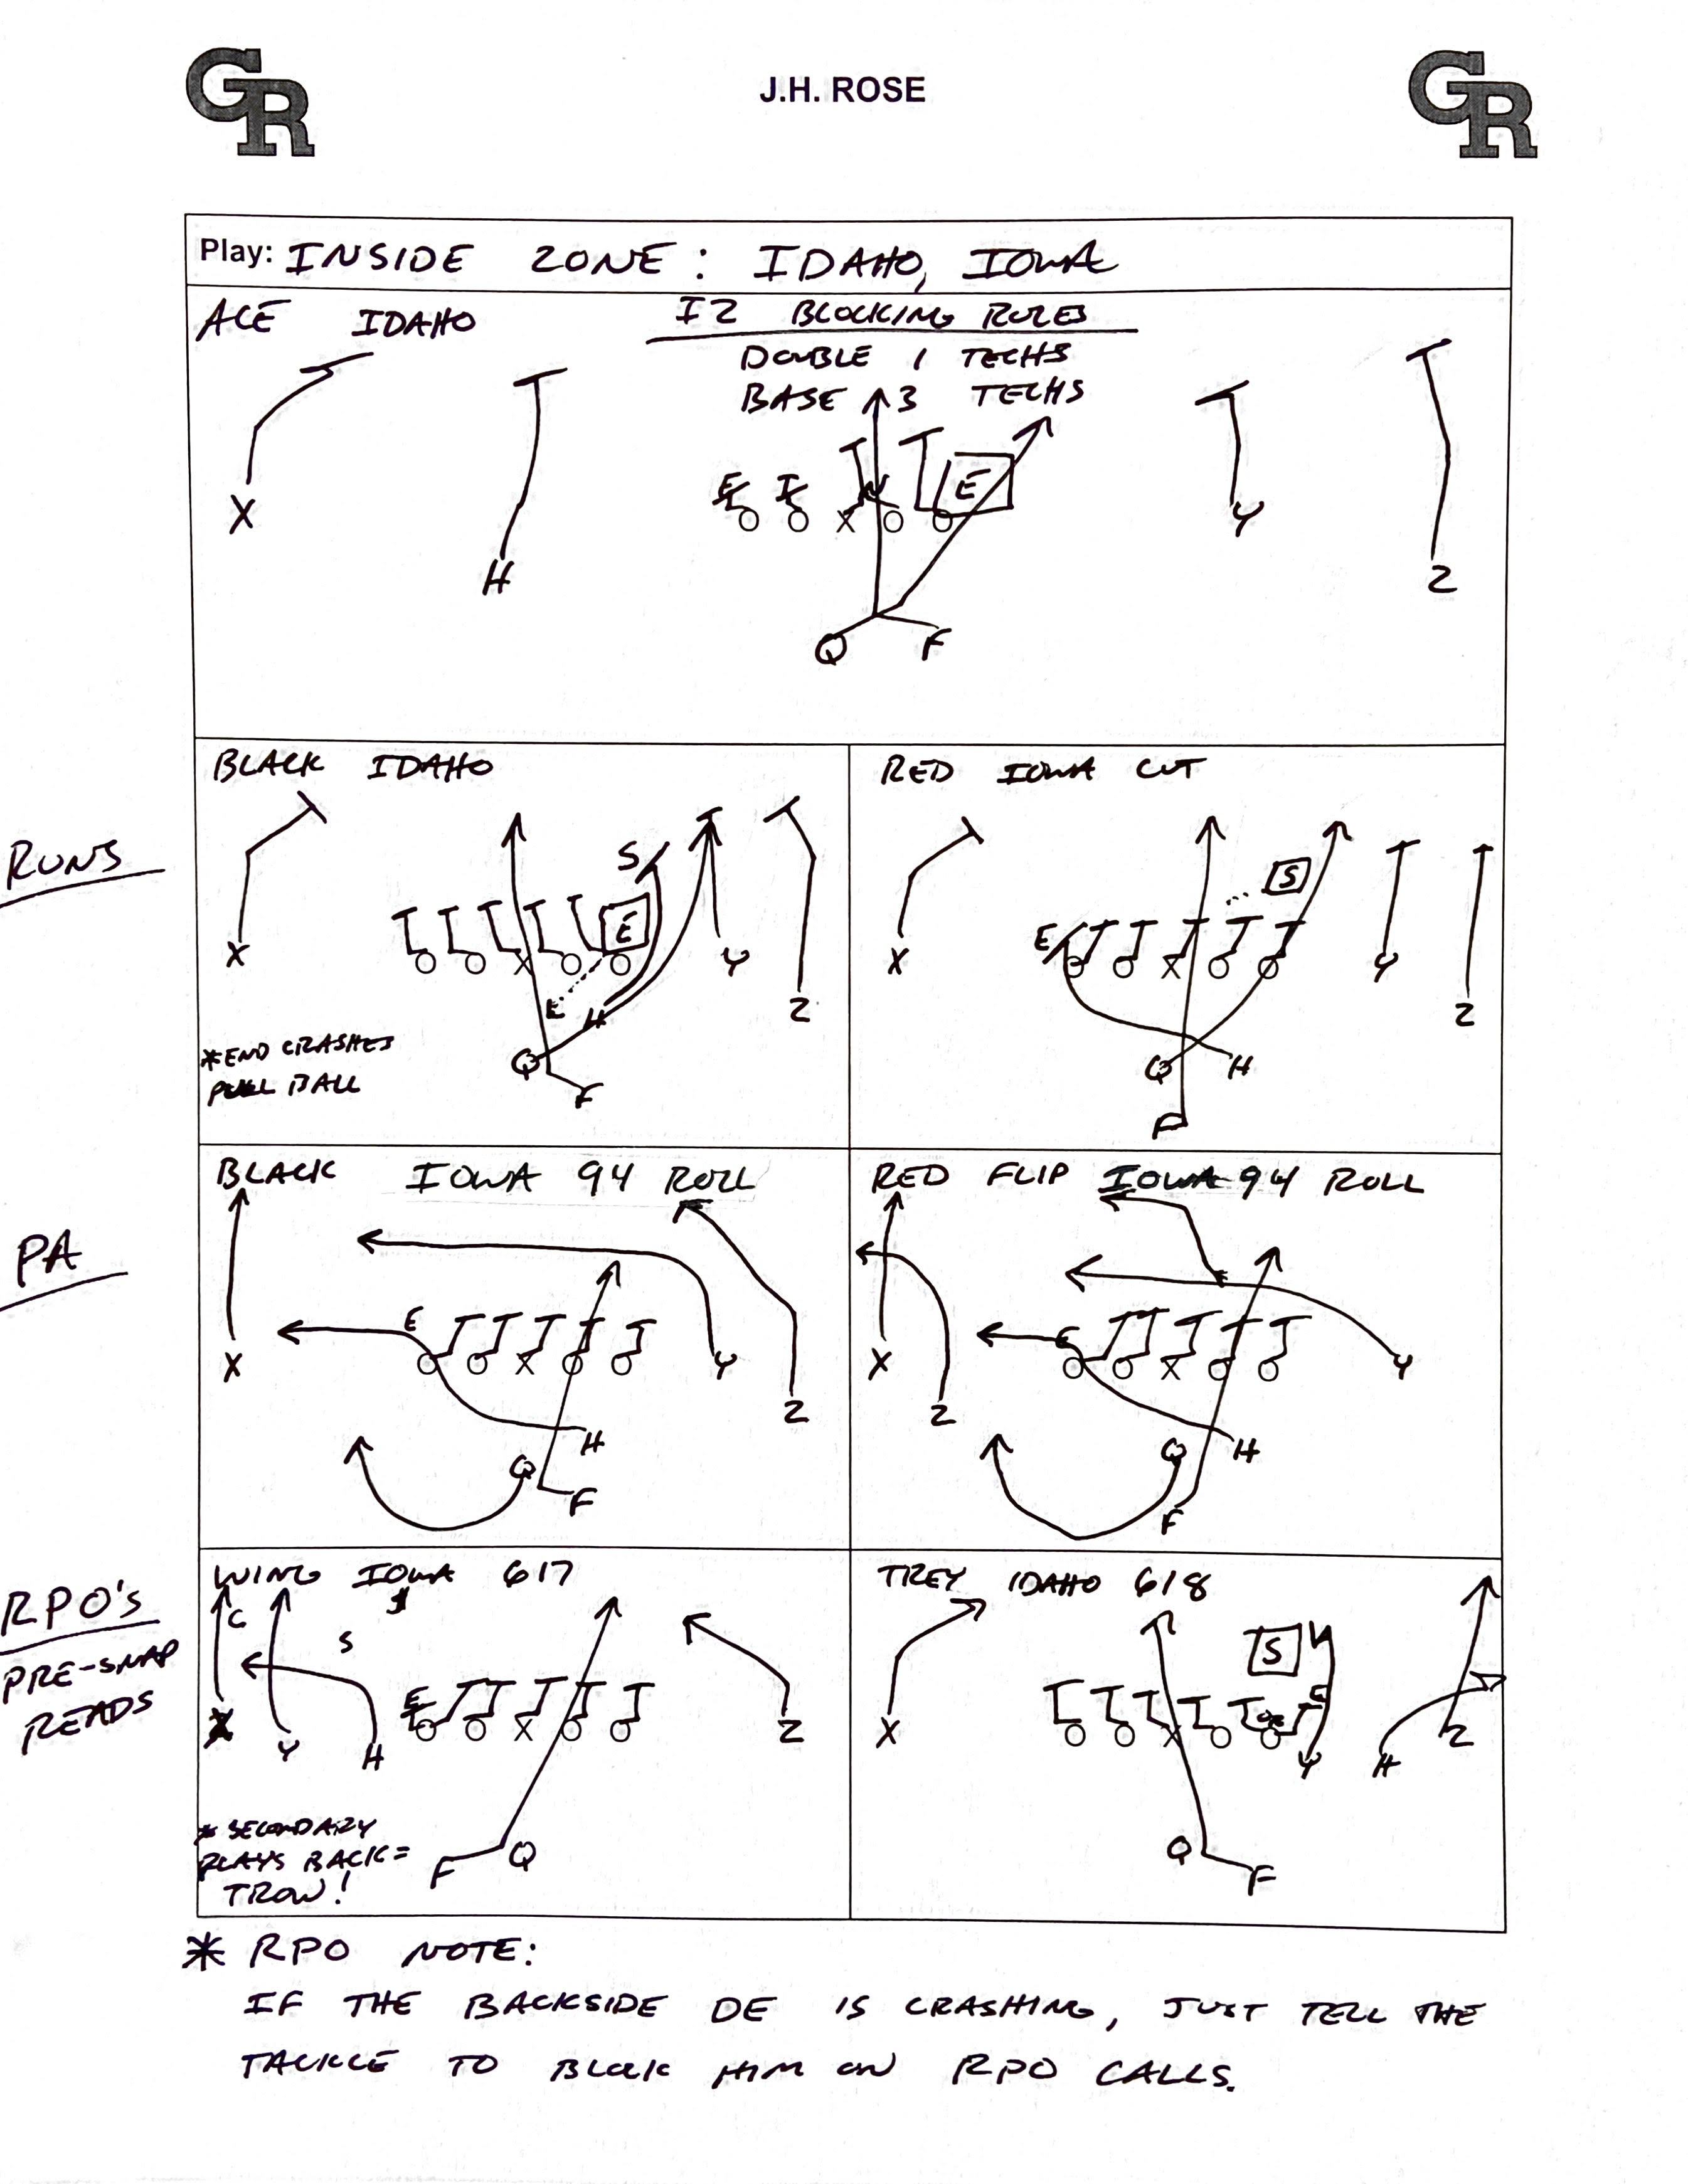 GR
J.H. ROSE
GR
Play: INSIDE ZONE: IDAHO, IOWA
ACE IDAHO
IZ BLOCKING RULES
DOUBLE 1 TECHS
BASE 3 TECHS
E T N E
X O O X O O Y
H Z
Q F
RUNS
BLACK IDAHO
S
E
X O O X O O Y
E H Z
*END CRASHES
PULL BALL
Q
F
RED IOWA CUT
S
E
X O O X O O Y
Z
Q H
F
PA
BLACK IOWA 94 ROLL
E
X O O X O O Y
Z
H
Q
F
RED FLIP IOWA 94 ROLL
E
X O O X O O Y
Z
Q H
F
RPO'S
PRE-SNAP
READS
WING IOWA 617
C
S
E
X Y H O O X O O Z
* SECONDARY
PLAYS BACK =
TROW!
F Q
TREY IDAHO 618
S
E
X O O X O O Y H Z
Q
F
* RPO NOTE:
IF THE BACKSIDE DE IS CRASHING, JUST TELL THE
TACKLE TO BLOCK HIM ON RPO CALLS.